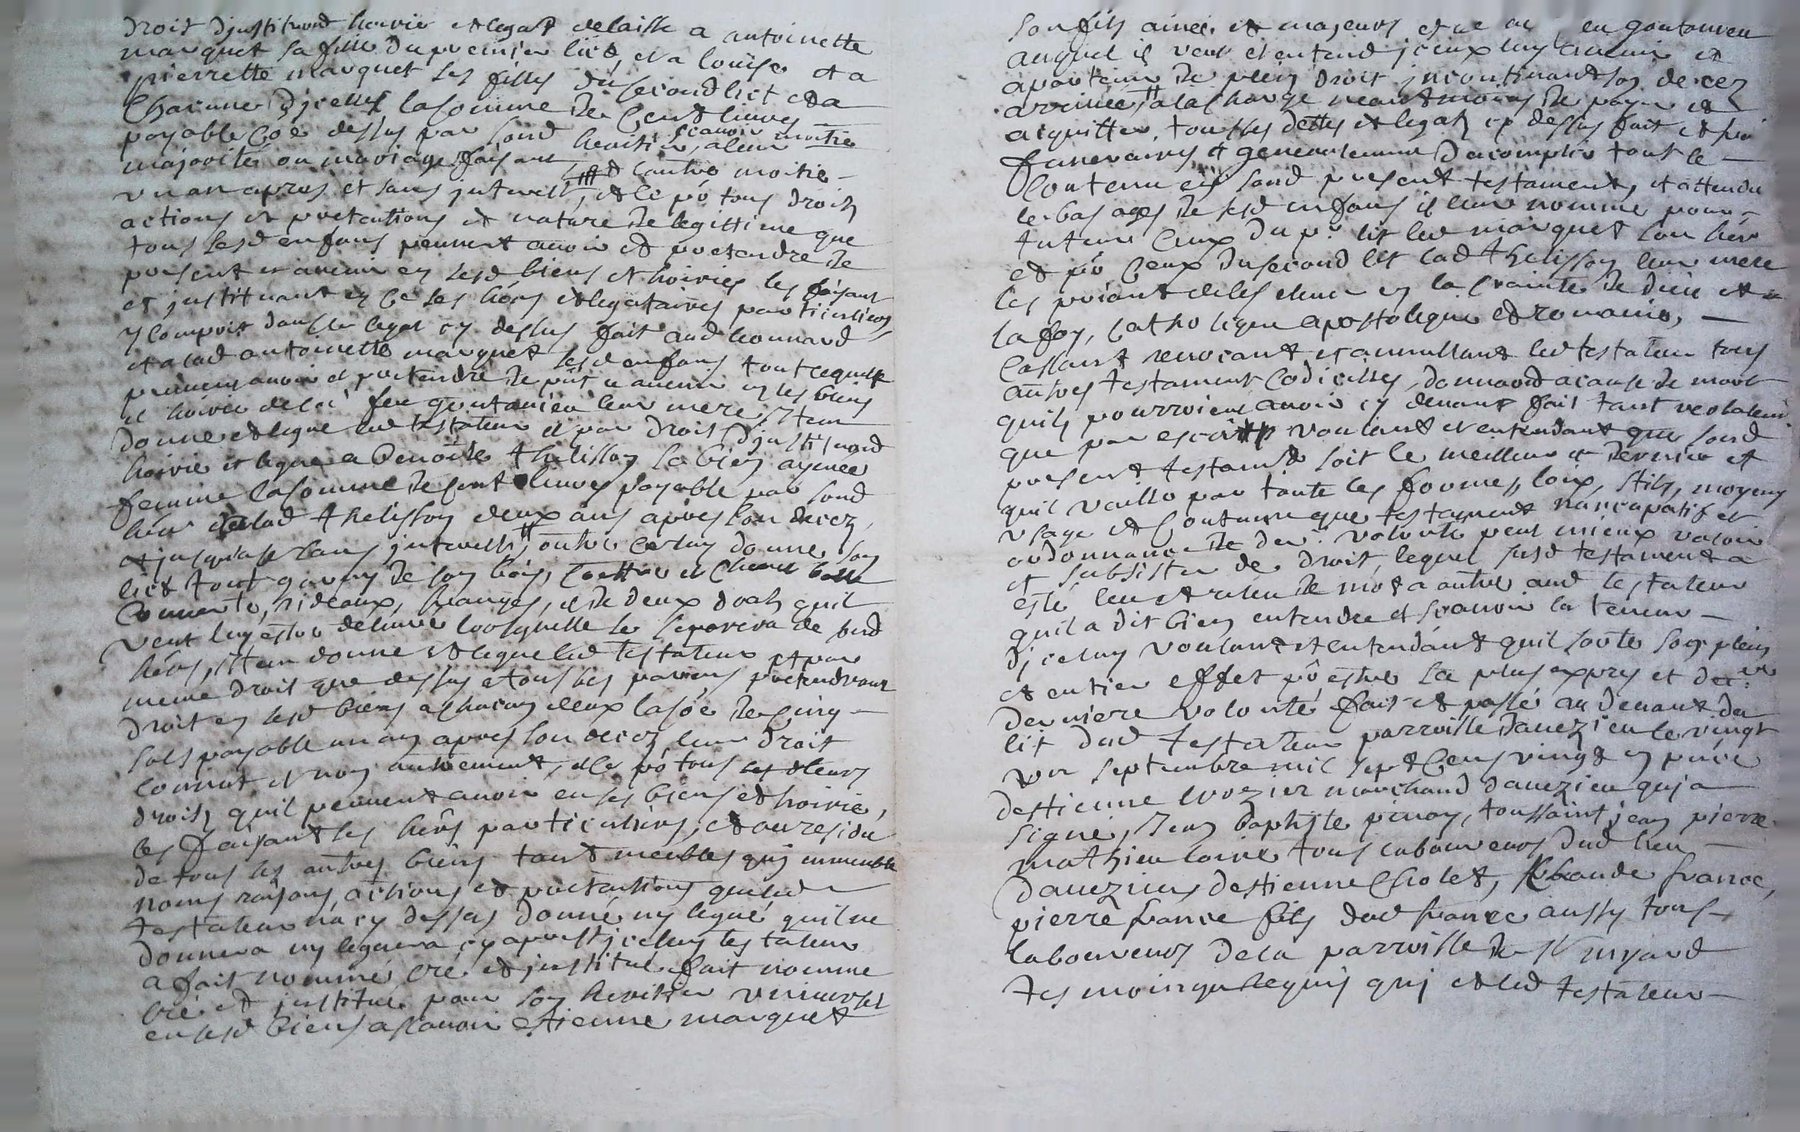 droit djnstitu͠ond hoirie et legat delaisse a antoinette
marquet sa fille du premier lict, et a louise et a
pierrette marquet ses filles du second lict et a
Chacune djcelles la somme de Cent livres
payable Coe dessus par sond heritier, a leur
majorités ou mariage faisant scavoir moitie et l'autre moitie
vn an apres et sans jnterest, et ce po tous droits
actions et pretentions et nature de legittime que
tous sesd enfans peuvent avoir et pretendre de
present et avenir en sesd biens et hoiries les faisant
et jnstituant en Ce ses hers et legataires particuliers
y Compris dans le legat cy dessus fait aud leonnard
et a lad antoinette marquet sesd enfans tout ce quils
peuvent avoir et pretendre de pnt et avenir en les biens
et hoirie de feu gontanieu leur mere, Jtem
donne et legue led testateur et par droit djnstitu͠ond
hoirie et legue a Benoite thelisson sa bien aymée
femme la somme de Cent livres payable par sond
her a lad thelisson deux ans apres son decez
et jusqualors sans jnterests, outre Ce luy donne son
lict tout garny de son bois,
Couverte, rideaux, franges, et de deux draps quil
veut luy estre delivré lorsquelle se separera de sond
her, Jtem donne et legue led testateur et par
meme droit que dessus a tous ses parens pretendrant
droit en sesd biens a chacun deux la soe de Cinq
sols payable un an apres son decez, leur droit
connut et non autrement, et ce po tous leurs
droits quil peuvent avoir en ses biens et hoirie,
les faisant ses hers particuliers, et au residu
de tous ses autres biens tant meubles quj immeuble
noms raisons, actions et pretentions que led
testateur na cy dessus donné ny legué quil ne
donnera ny leguera cy apres jceluy testateur
a fait nommé cré et jnstitué, fait nomme
cré et jnstitue pour son heritier vniversel
en sesd biens a scavoir estienne marquet
son fils ainée et majeur en gontanieu
auquel il veut et entend jceux luy avenir et
apartenir de plein droit jncontinant son decez
arrivée, a la Charge neantmoins de payer et
acquitter, tous ses dettes et legatz cy dessus fait et frais
funeraires et generalement dacomplir tout le
Contenu en sond present testament, et attendu
le bas ages de sesd enfans il leur nomme pour
tuteur Ceux du pr lit led marquet son her
et po Ceux du second lit lad thelisson leur mere
les priant de les elever en la Crainte de dieu et
la foy, Catholique apostolique et romaine,
Cassant revocant et annullant led testateur tous
autres testament Codicilles, donna͠ond a cause de mort
quils pourroient avoir cy devant fait tant verbalem
que par escript voulant et entendant que sond
present testamt soit le meilleur et dernier et
quil vaille par toute les formes, loix, stils, moyens
vsage et Coutume que testament noncupatif et
ordonnance de der volonté peut mieux valoir
et subsister de droit, lequel susd testament a
esté leu et releu de mot a autre aud testateur
quil a dit bien entendre et scavoir la teneur
djceluy voulant et entendant quil sorte son plein
et entier effet po estre sa plus expres et
derniere volonté fait et passé au devant du
lit dud testateur parroisse davezieu le vingt
septembre mil sept Cens vingt en pnce
destienne marchand davezieu quj a
signé, Jean Baptiste pinay, toussaint jean pierre
mathieu tous laboureurs dud lieu
davezieu destienne Cholet, Claude france,
pierre france fils dud france aussy tous
laboureurs de la parroisse de
tesmoins requis quj et led testateur